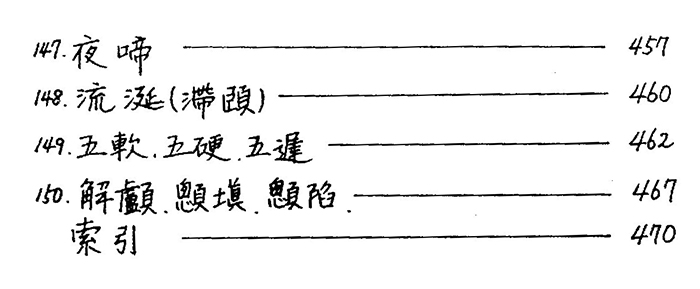 147. 夜啼 457
148. 流涎(滯頤) 460
149. 五軟.五硬.五遲 462
150. 解顱.顖塡.顖陷. 467
索引 470